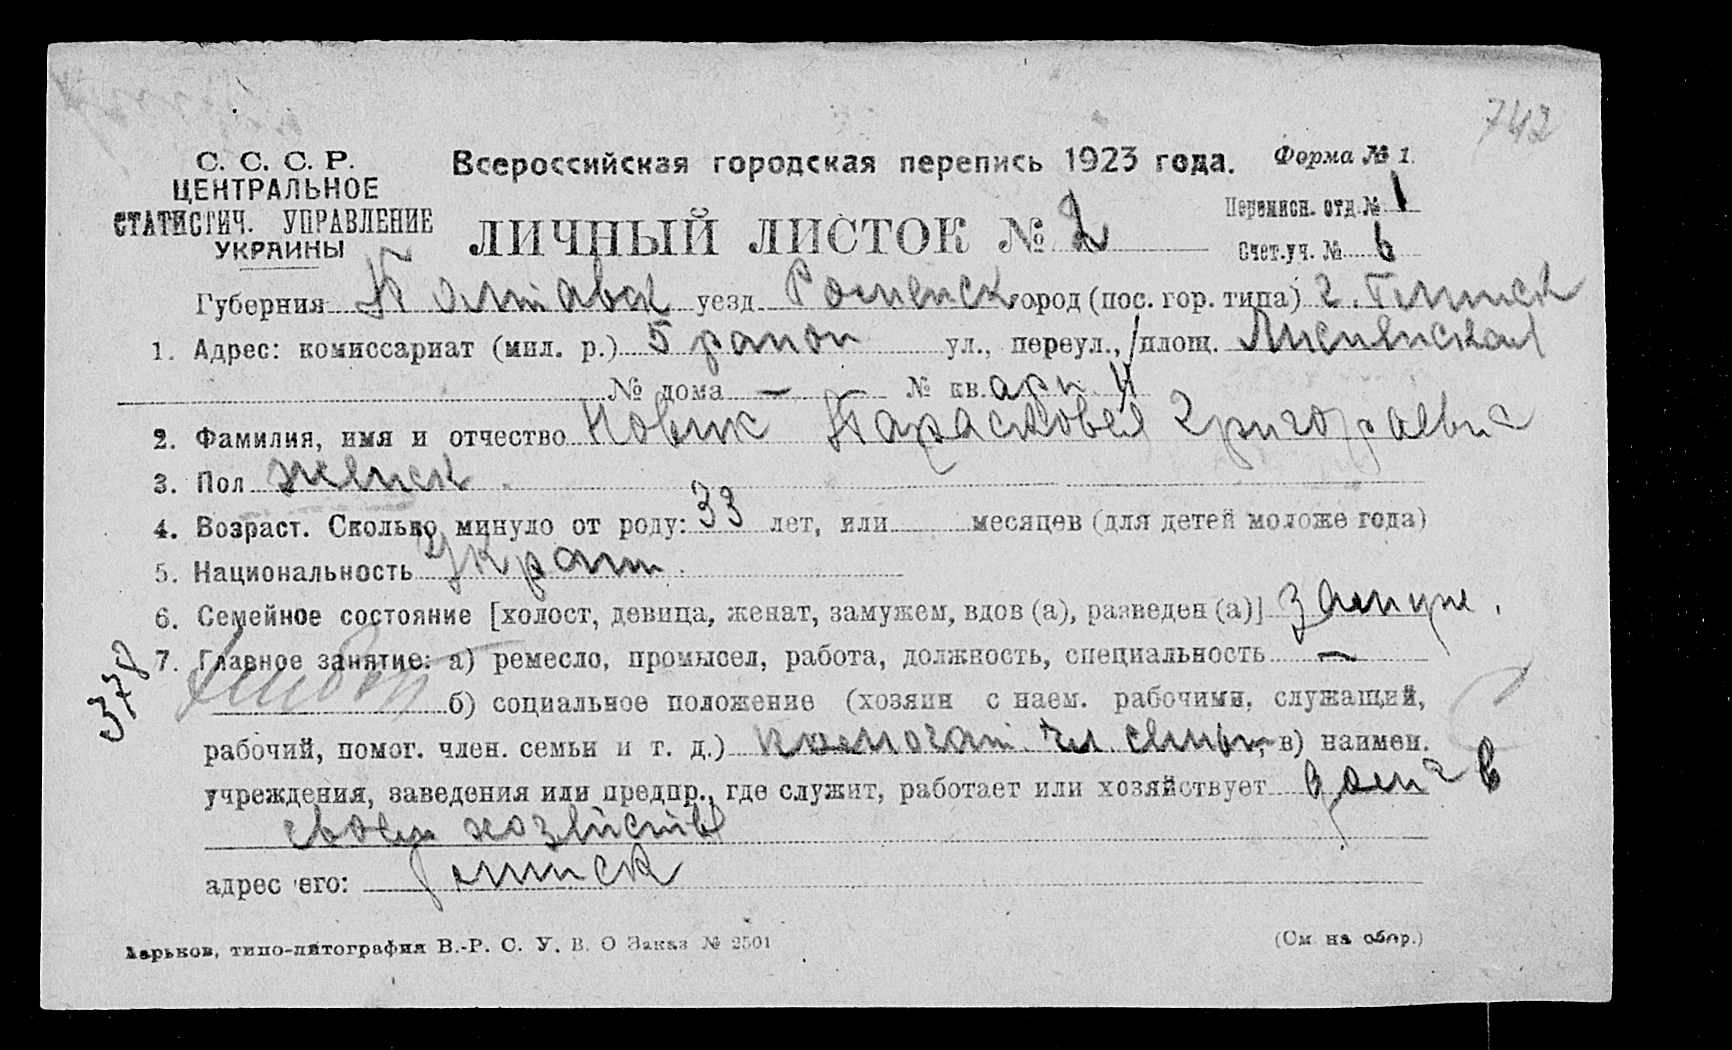 742
С. С. С. Р.
ЦЕНТРАЛЬНОЕ
СТАТИСТИЧ. УПРАВЛЕНИЕ
УКРАИНЫ
Всероссийская городская перепись 1923 года.
Форма № 1.
ЛИЧНЫЙ ЛИСТОК № 2
Переписн. отд. № 1
Счет.-уч. № 6
Губерния Полтавск уезд Роменск город (пос. гор. типа) г. Глинск
1. Адрес: комиссариат (мил. р.) 5 район ул., переул., / площ.
№ дома — № кв.
2. Фамилия, имя и отчество Новик Парасковея Григораевна
3. Пол женск
4. Возраст. Сколько минуло от роду: 33 лет, или месяцев (для детей моложе года)
5. Национальность Украин.
6. Семейное состояние [холост, девица, женат, замужем, вдов (а), разведен (а)] Замуже.
7. Главное занятие: а) ремесло, промысел, работа, должность, специальность —
378
б) социальное положение (хозяин с наем. рабочими, служащий,
рабочий, помог. член. семьи и т. д.) помогат чл. семьи, в) наимен.
учреждения, заведения или предпр., где служит, работает или хозяйствует дома в
своем хозяйстве
адрес его: Глинск
Харьков, типо-литография В.-Р. С. У. В. О Заказ № 2501
(См. на обор.)